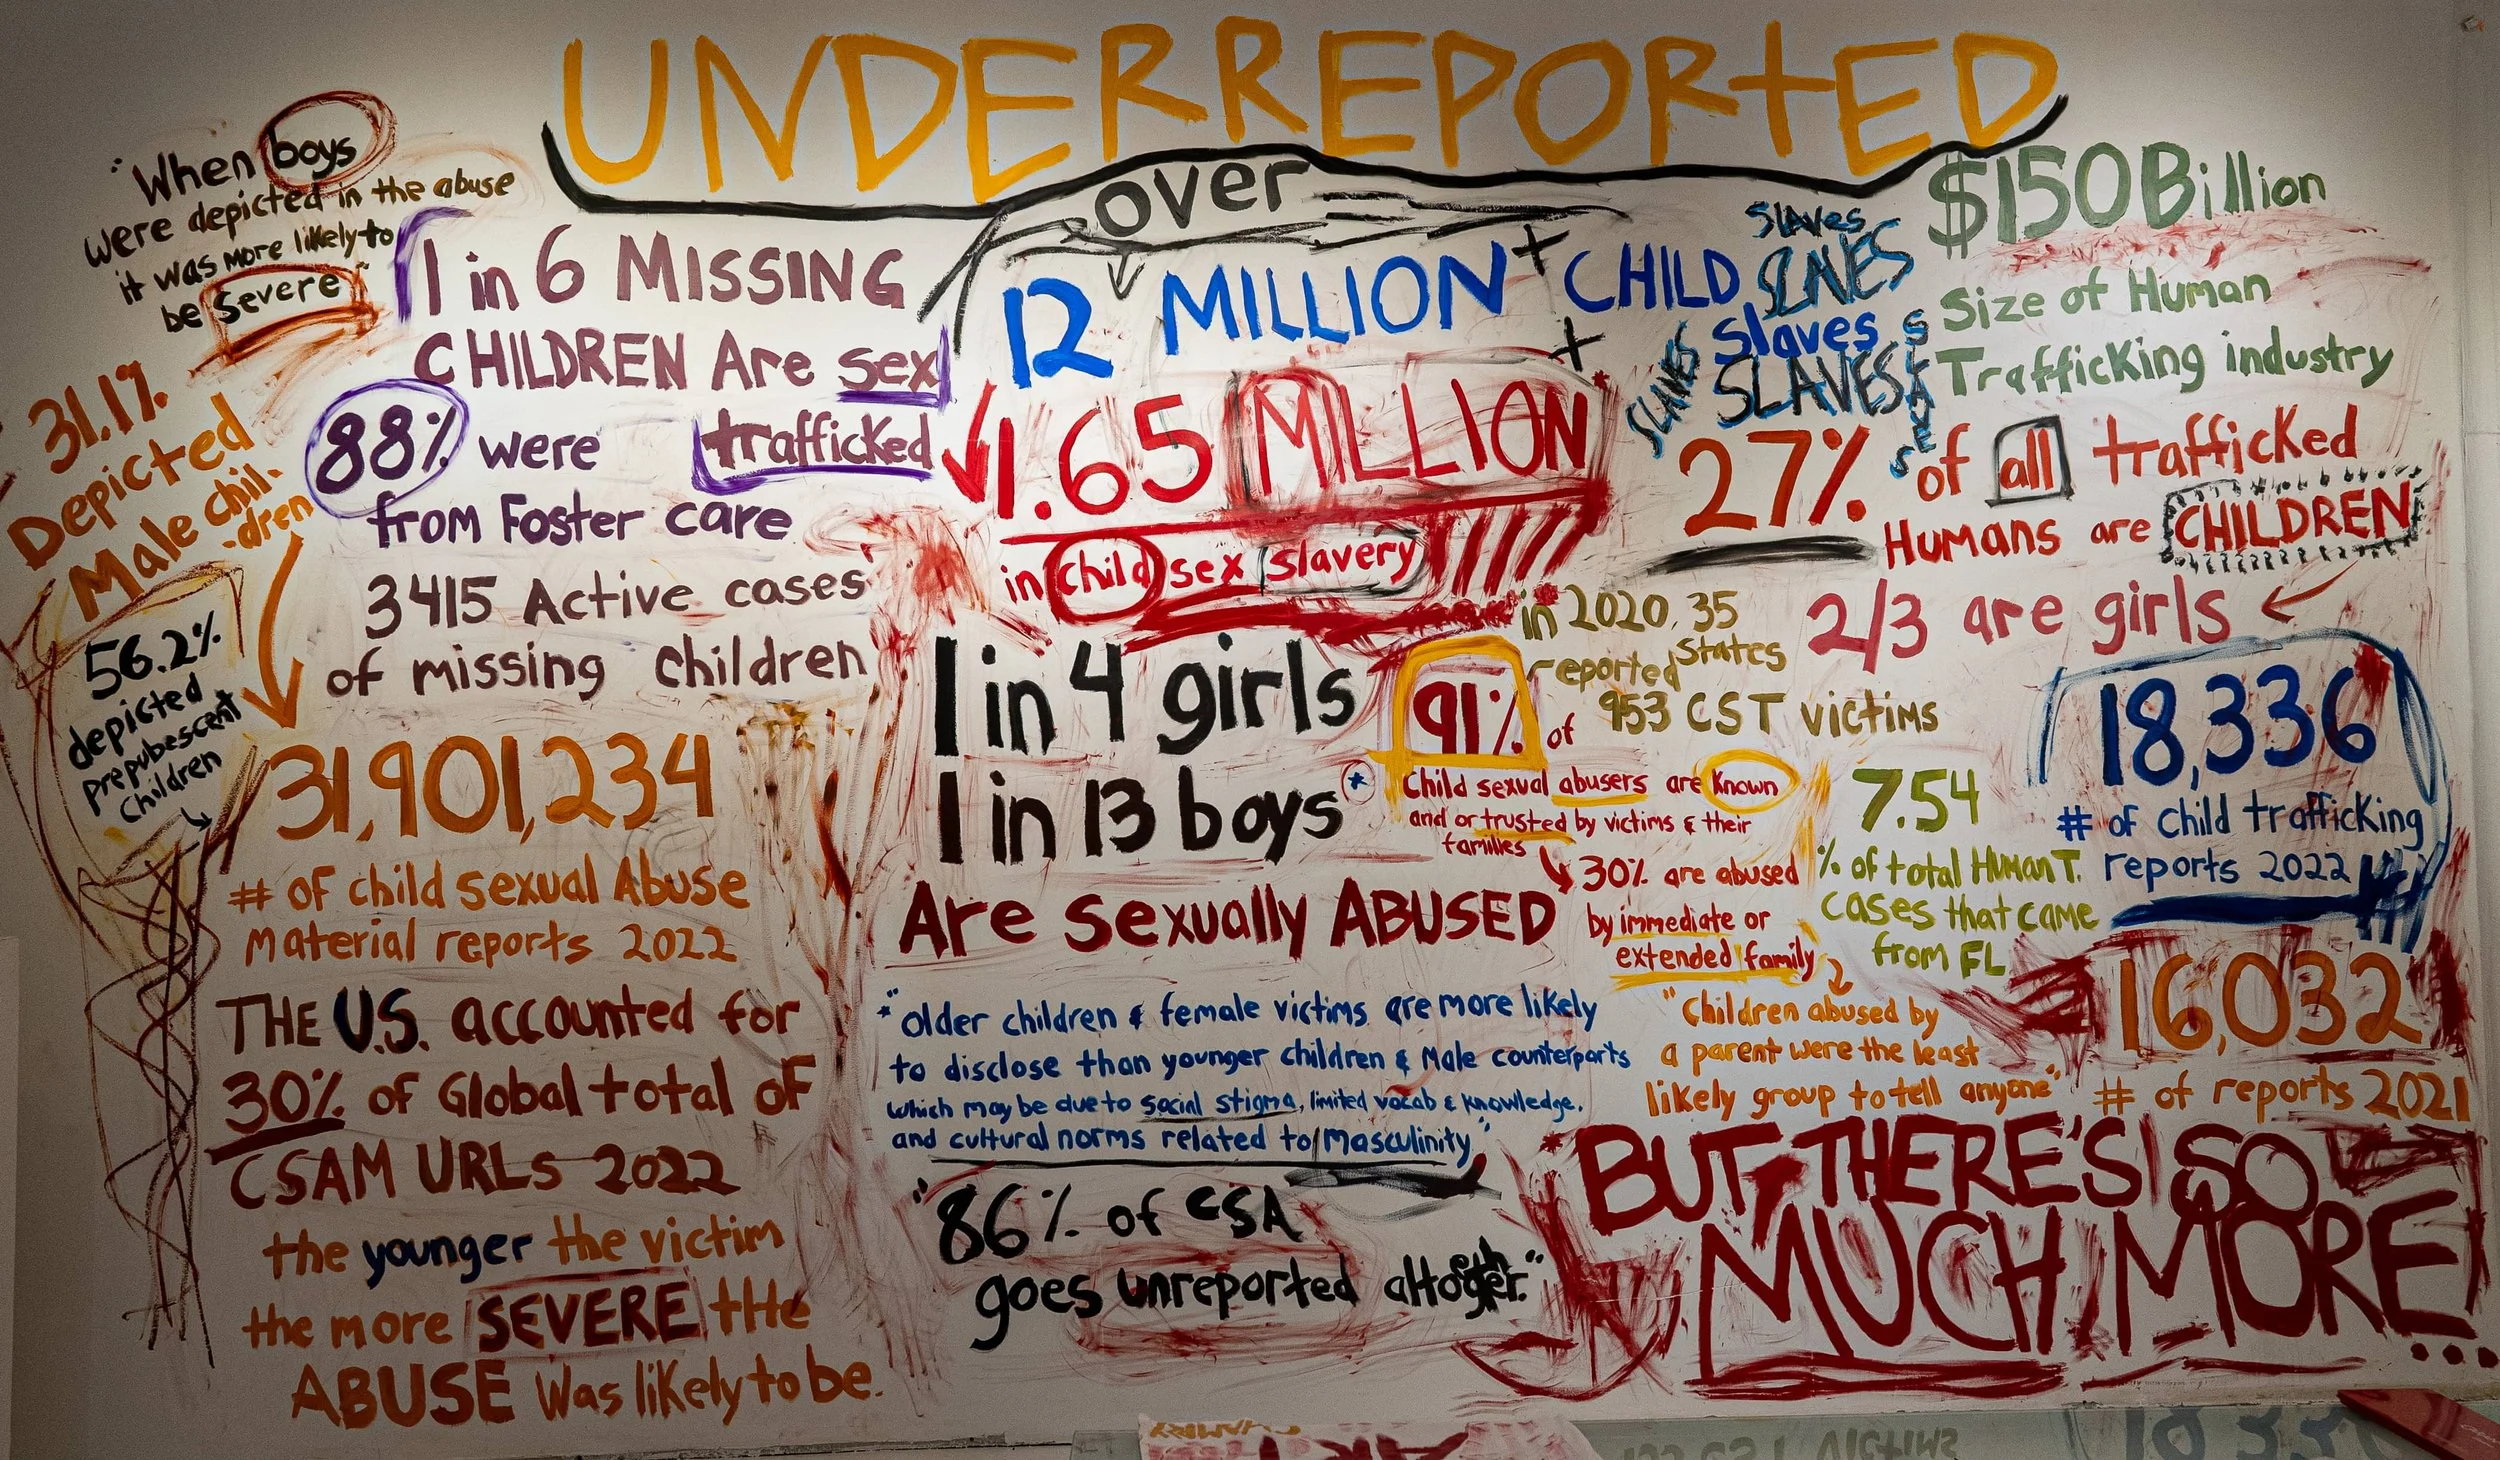 UNDERREPORTED
"When boys
were depicted in the abuse
it was more likely to
be severe"
31.1%
Depicted
Male chil-
-dren
56.2%
depicted
prepubescent
children
1 in 6 MISSING
CHILDREN Are sex
trafficked
88% were
from Foster care
3415 Active cases
of missing children
31,901,234
# of child sexual Abuse
Material reports 2022
THE U.S. accounted for
30% of Global total of
CSAM URLs 2022
the younger the victim
the more SEVERE the
ABUSE was likely to be.
over
12 MILLION + CHILD
slaves
SLAVES
slaves
SLAVES
SLAVES
SLAVES
+
1.65 MILLION*
in child sex slavery
1 in 4 girls
1 in 13 boys*
Are sexually ABUSED
*"older children & female victims are more likely
to disclose than younger children & Male counterparts
which may be due to social stigma, limited vocab & knowledge,
and cultural norms related to masculinity"
"86% of CSA
goes unreported altogether."
$150 Billion
Size of Human
Trafficking industry
27% of all trafficked
Humans are CHILDREN
2/3 are girls
in 2020, 35
States
reported
953 CST victims
91% of
Child sexual abusers are known
and or trusted by victims & their
families
30% are abused
by immediate or
extended family
"Children abused by
a parent were the least
likely group to tell anyone"
7.54
% of total Human T.
cases that came
from FL
18,336
# of child trafficking
reports 2022
16,032
# of reports 2021
*BUT, THERE'S SO
MUCH MORE...